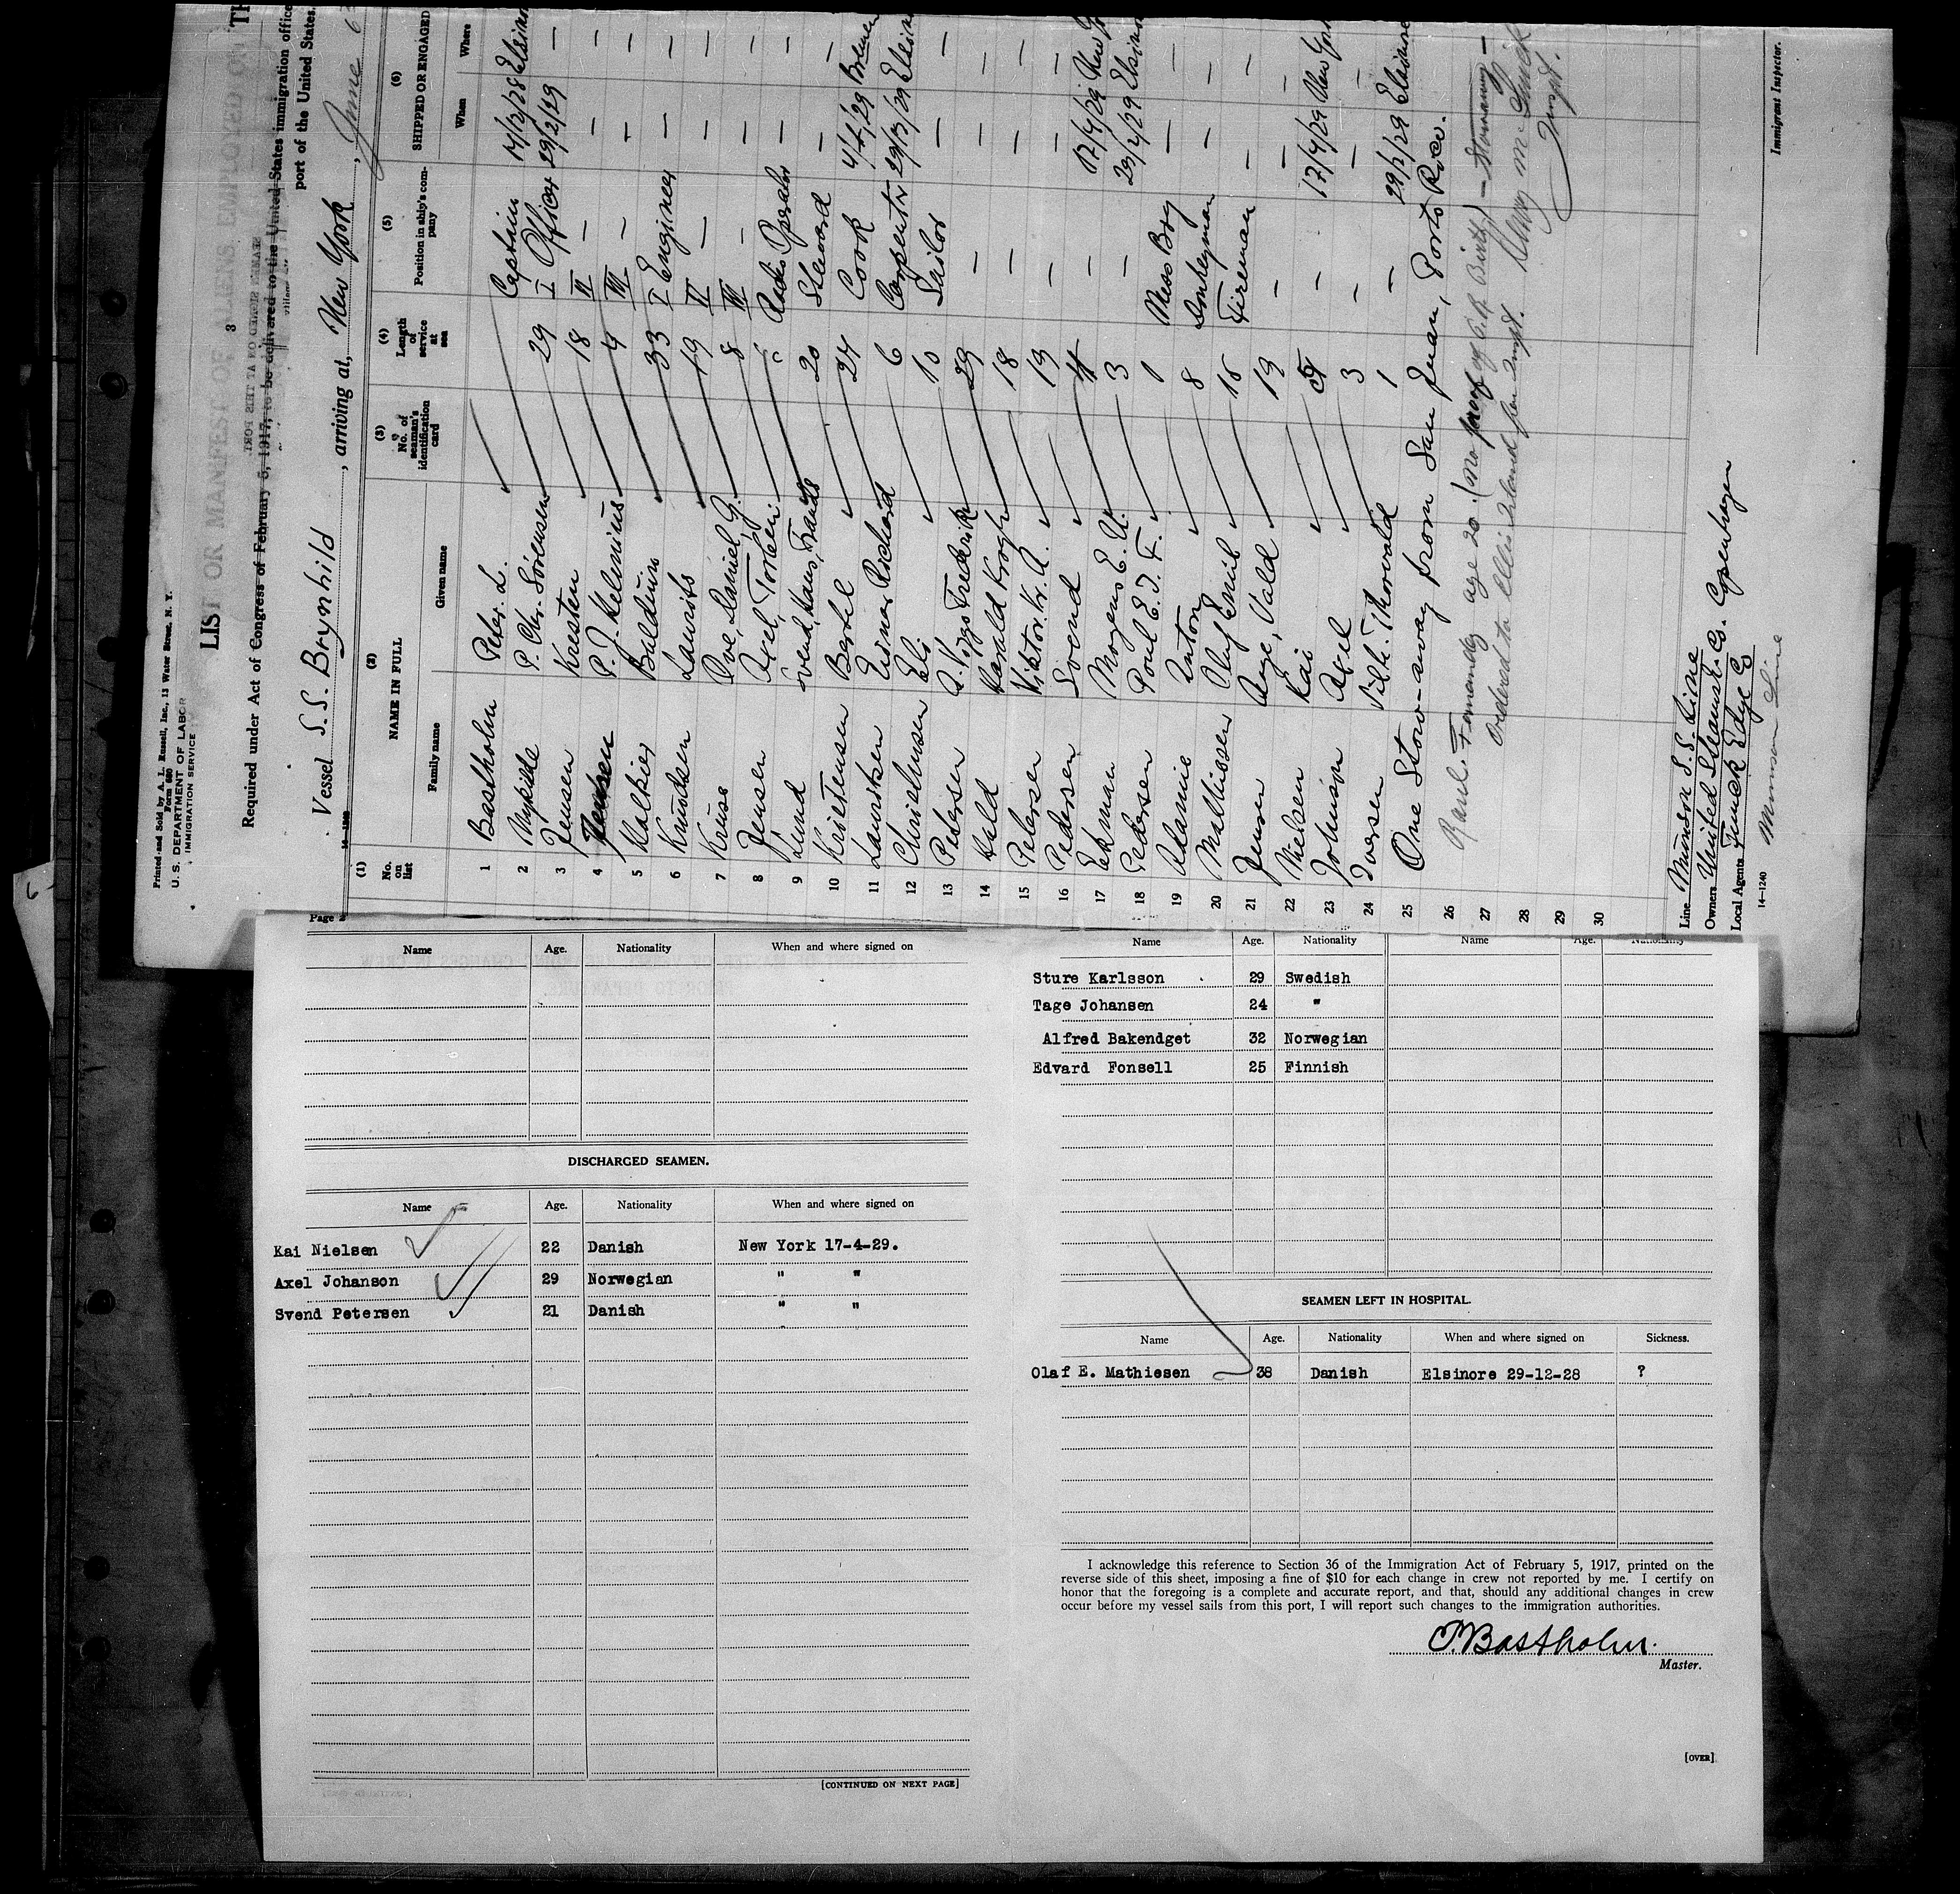 Printed and Sold by A. L. Russell, Inc., 13 Water Street, N. Y.
Form 680
U. S. DEPARTMENT OF LABOR
IMMIGRATION SERVICE
3
LIST OR MANIFEST OF ALIENS EMPLOYED ON TH
Required under Act of Congress of February 5, 1917, to be delivered to the United States immigration office
port of the United States.
Vessel S.S. Brynhild, arriving at, New York, June 6
14-1240
(1) (2) (3) (4) (5) (6)
No. on list NAME IN FULL No. of seaman's identification card Length of service at sea Position in ship's company SHIPPED OR ENGAGED
Family name Given name When Where
1 Bastholm Peter L. Captain 14/12/28 Elsinor
2 Myrilde P. Chr. Sörensen 29 I Officer 29/2/29 —
3 Jensen Kresten 18 II — — —
4 Jensen P. J. Helmius 9 III — — —
5 Kalkier Balduin 33 I Engineer — —
6 Knudsen Laurits 19 II — — —
7 Kruse Ove, Daniel G. 8 III — — —
8 Jensen Axel, Torben Radio Operator — —
9 Lund Svend, Hans, Frants 20 Steward — —
10 Kristensen Bertel 24 Cook 4/4/29 Bremen
11 Lauritzen Einar Richard 6 Carpenter 29/3/29 Elsinor
12 Christensen Eli 10 Sailor — —
13 Petersen A. Viggo Frederik 29 — — —
14 Hald Harald Krogh 18 — — —
15 Petersen Viktor. Kr. A. 19 — — —
16 Pedersen Svend 4 — 17/4/29 New Yor
17 Ekman Mogens E. U. 3 — 29/2/29 Elsinor
18 Pedersen Poul E. J. F. 1 Mess Boy — —
19 Adamie Anton 8 Donkeyman — —
20 Mathissen Oluf Emil 16 Fireman — —
21 Jensen Aage, Vald 19 — — —
22 Nielsen Kai 5 — 17/4/29 New York
23 Johnson Axel 3 — — —
24 Iversen Vilh. Thorvald 1 — 29/2/29 Elsinore
25 One Stow-away from San Juan, Porto Rico.
26 Raul Fernandez age 20. (No proof of P.R. Birth) —
27 Ordered to Ellis Island for inspt.
28
29
30
Line Munson S. S. Line
Owners United Steamsh. Co. Copenhagen
Local Agents Funch Edye Co
Munson Line
14-1240
Immigrant Inspector.
Page 2
Name Age. Nationality When and where signed on
DISCHARGED SEAMEN.
Name Age. Nationality When and where signed on
Kai Nielsen 22 Danish New York 17-4-29.
Axel Johanson 29 Norwegian " "
Svend Petersen 21 Danish " "
[CONTINUED ON NEXT PAGE]
Name Age. Nationality Name Age. Nationality
Sture Karlsson 29 Swedish
Tage Johansen 24 "
Alfred Bakendget 32 Norwegian
Edvard Fonsell 25 Finnish
SEAMEN LEFT IN HOSPITAL.
Name Age. Nationality When and where signed on Sickness.
Olaf E. Mathiesen 38 Danish Elsinore 29-12-28 ?
I acknowledge this reference to Section 36 of the Immigration Act of February 5, 1917, printed on the
reverse side of this sheet, imposing a fine of $10 for each change in crew not reported by me. I certify on
honor that the foregoing is a complete and accurate report, and that, should any additional changes in crew
occur before my vessel sails from this port, I will report such changes to the immigration authorities.
P. Bastholm.
Master.
[OVER]